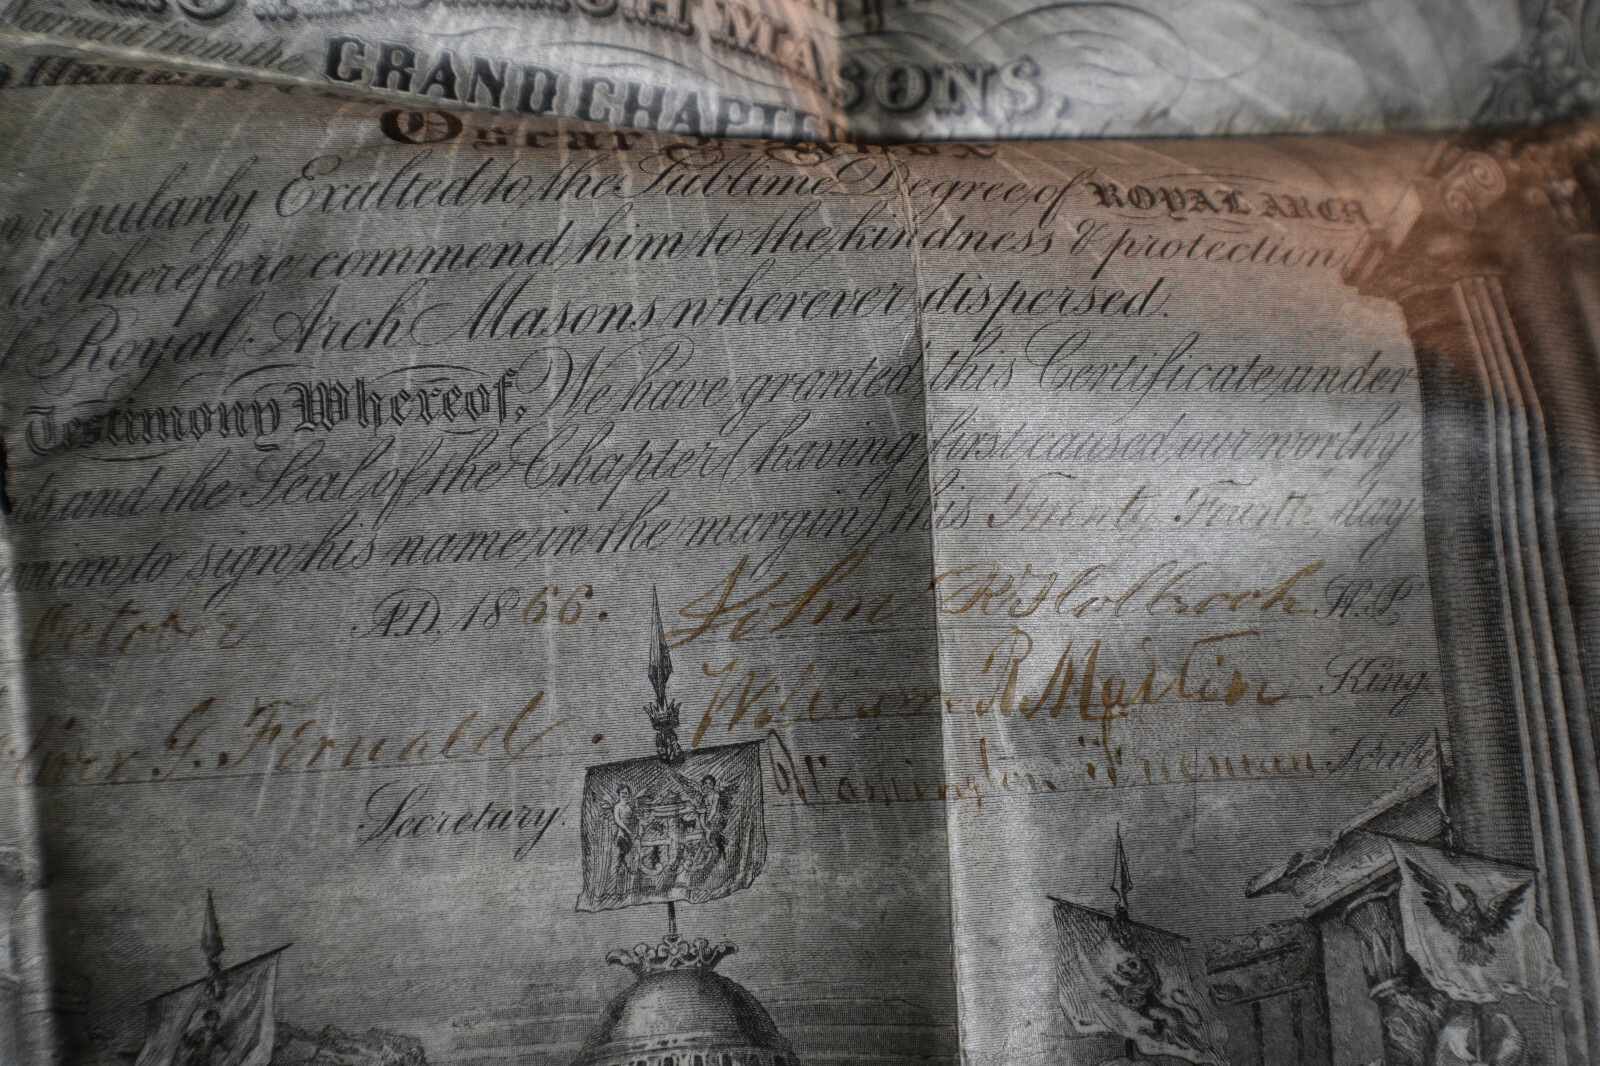 MASONS,
from the
GRAND CHAPTE
Oscar
regularly Exalted to the Sublime Degree of ROYAL ARCH
do therefore commend him to the kindness & protection
Royal Arch Masons wherever dispersed.
Testimony Whereof, We have granted this Certificate, under
and the Seal of the Chapter (having first caused our worthy
to sign his name, in the margin) this Twenty Fourth day
October A.D. 1866. John K Holbrook H.P.
William R Martin King.
G. Fernald.
Washington Freeman Scribe
Secretary.